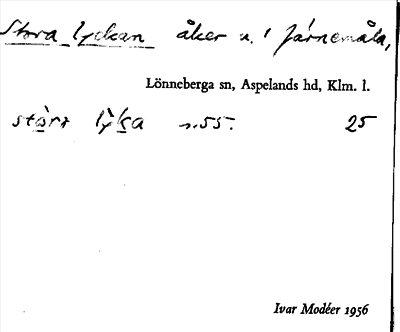 Stora lyckan åker u. Järnemåla,
Lönneberga sn, Aspelands hd, Klm. l.
lỳka s. 55. 25
Ivar Modéer 1956